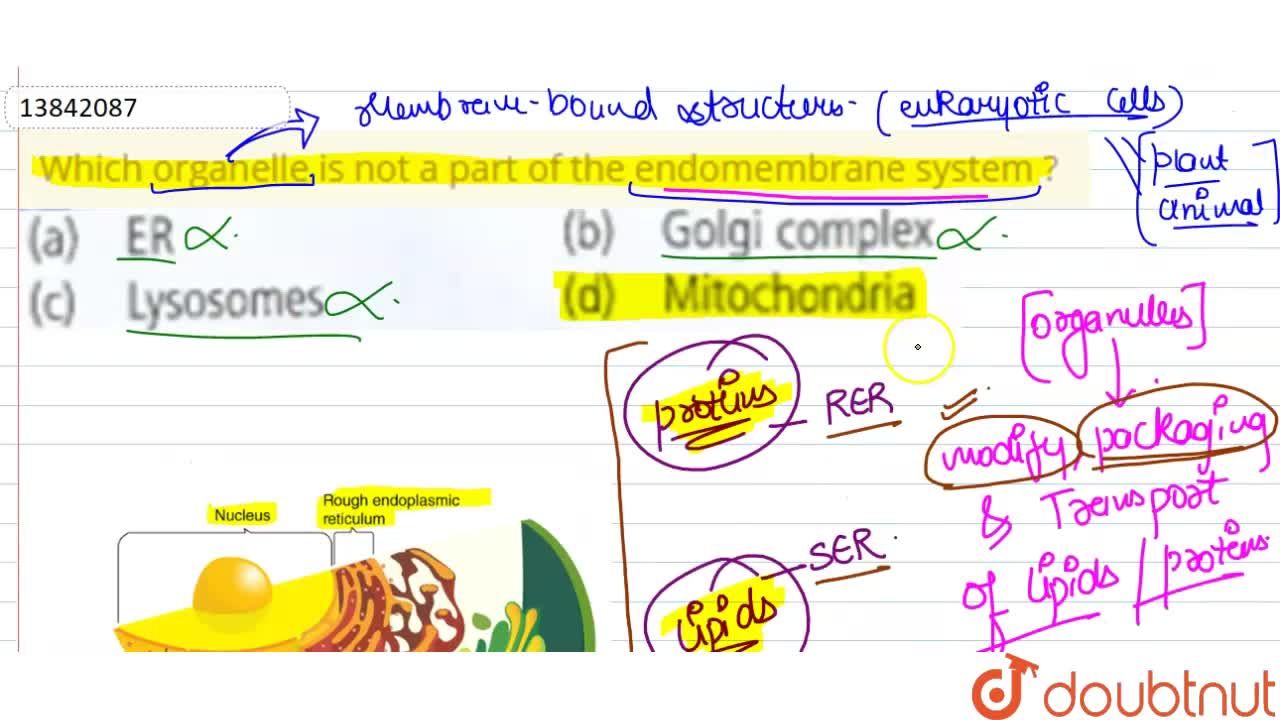 13842087
Membrane-bound structures- (eukaryotic cells)
Which organelle is not a part of the endomembrane system ?
plant
animal
(a) ER
(b) Golgi complex
(c) Lysosomes
(d) Mitochondria
[organelles]
proteins - RER
modify, packaging
& Transport
of lipids / proteins.
lipids - SER.
Nucleus
Rough endoplasmic
reticulum
doubtnut